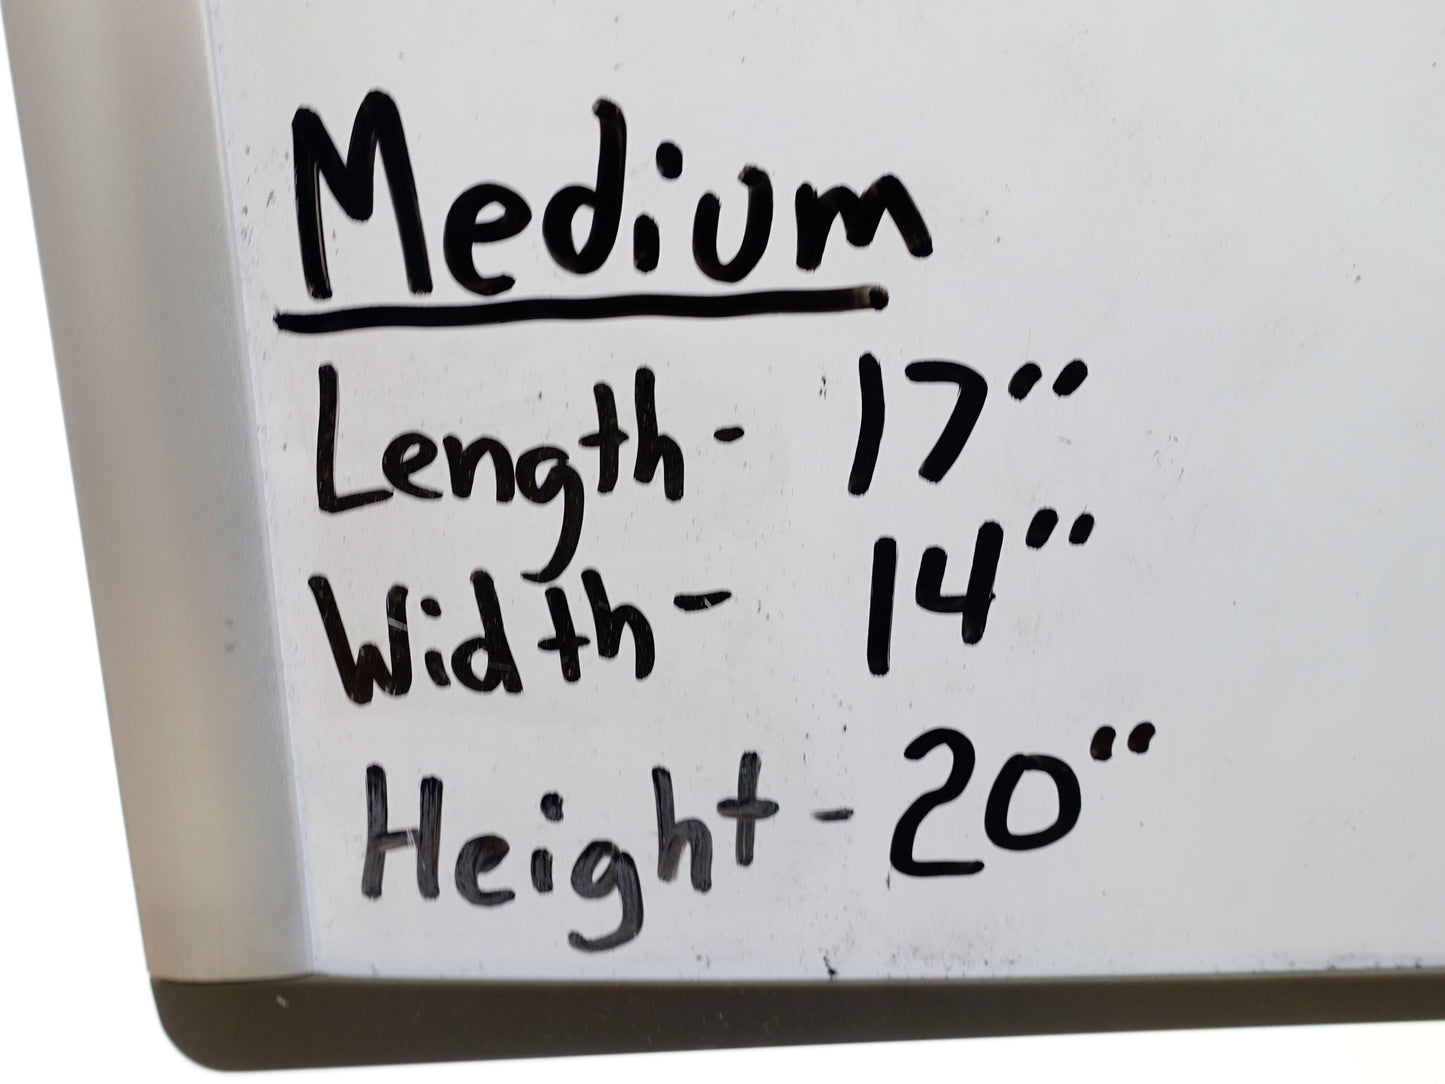 Medium
Length - 17"
Width - 14"
Height - 20"